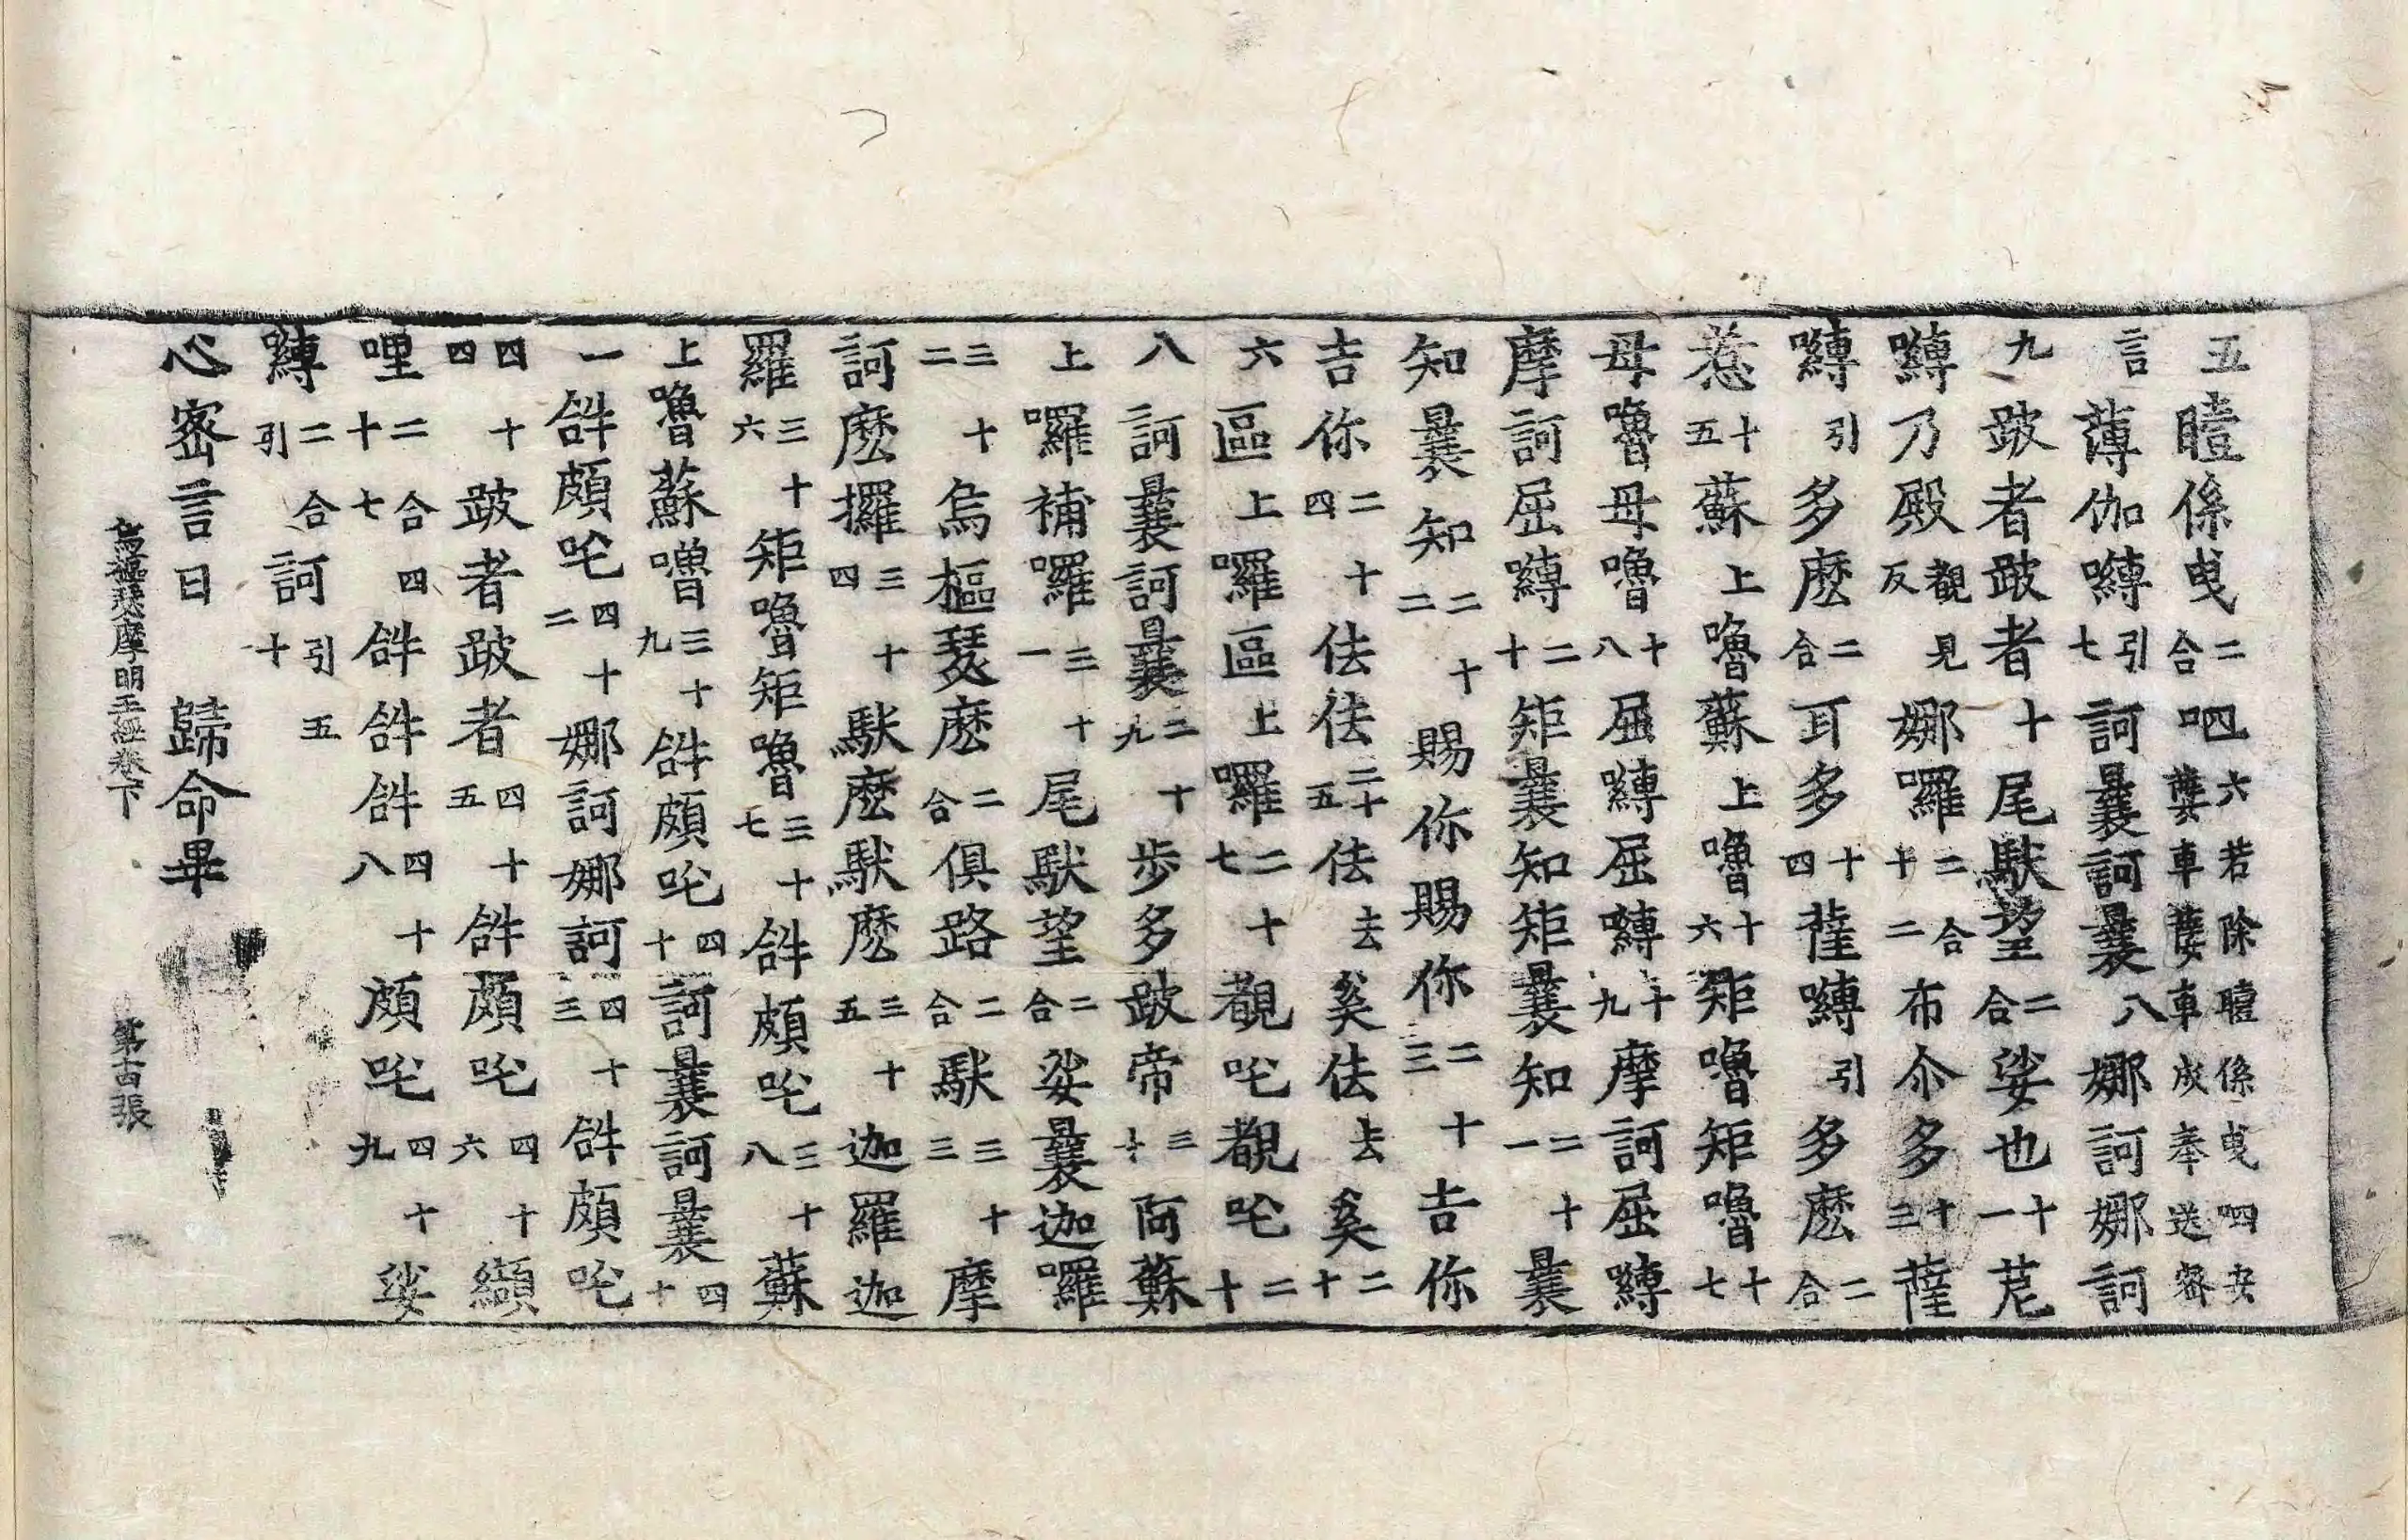 五瞳係曳二合呬六若除瞳係曳呬安薨車薨車成奉送密
言薄伽嚩引七訶曩訶曩八娜訶娜訶
九跛者跛者十尾馱望二合娑也十一茊
嚩乃殿觀見反娜囉二合十二布尒多十三薩
嚩引多麽二合耳多十四薩嚩引多麽二合
惹十五蘇上嚕蘇上嚕十六矩嚕矩嚕十七
母嚕母嚕十八屈嚩屈嚩十九摩訶屈嚩
摩訶屈嚩二十矩曩知矩曩知二十一曩
知曩知二十二賜你賜你二十三吉你
吉你二十四佉佉二十五佉去奚佉去奚二十
六區上囉區上囉二十七覩吒覩吒二十
八訶曩訶曩二十九步多跛帝三十阿蘇
上囉補囉三十一尾馱望二合娑曩迦囉
三十二烏樞瑟麽二合俱路二合馱三十三摩
訶麽攞三十四馱麽馱麽三十五迦羅迦
羅三十六矩嚕矩嚕三十七䤈頗吒三十八蘇
上嚕蘇嚕三十九䤈頗吒四十訶曩訶曩四十
一䤈頗吒四十二娜訶娜訶四十三䤈頗吒
四十四跛者跛者四十五䤈頗吒四十六纈
哩二合四十七䤈䤈䤈四十八頗吒四十九娑
嚩二合引訶引五十
心密言曰　歸命畢
烏樞瑟摩明王經卷下　第十四張